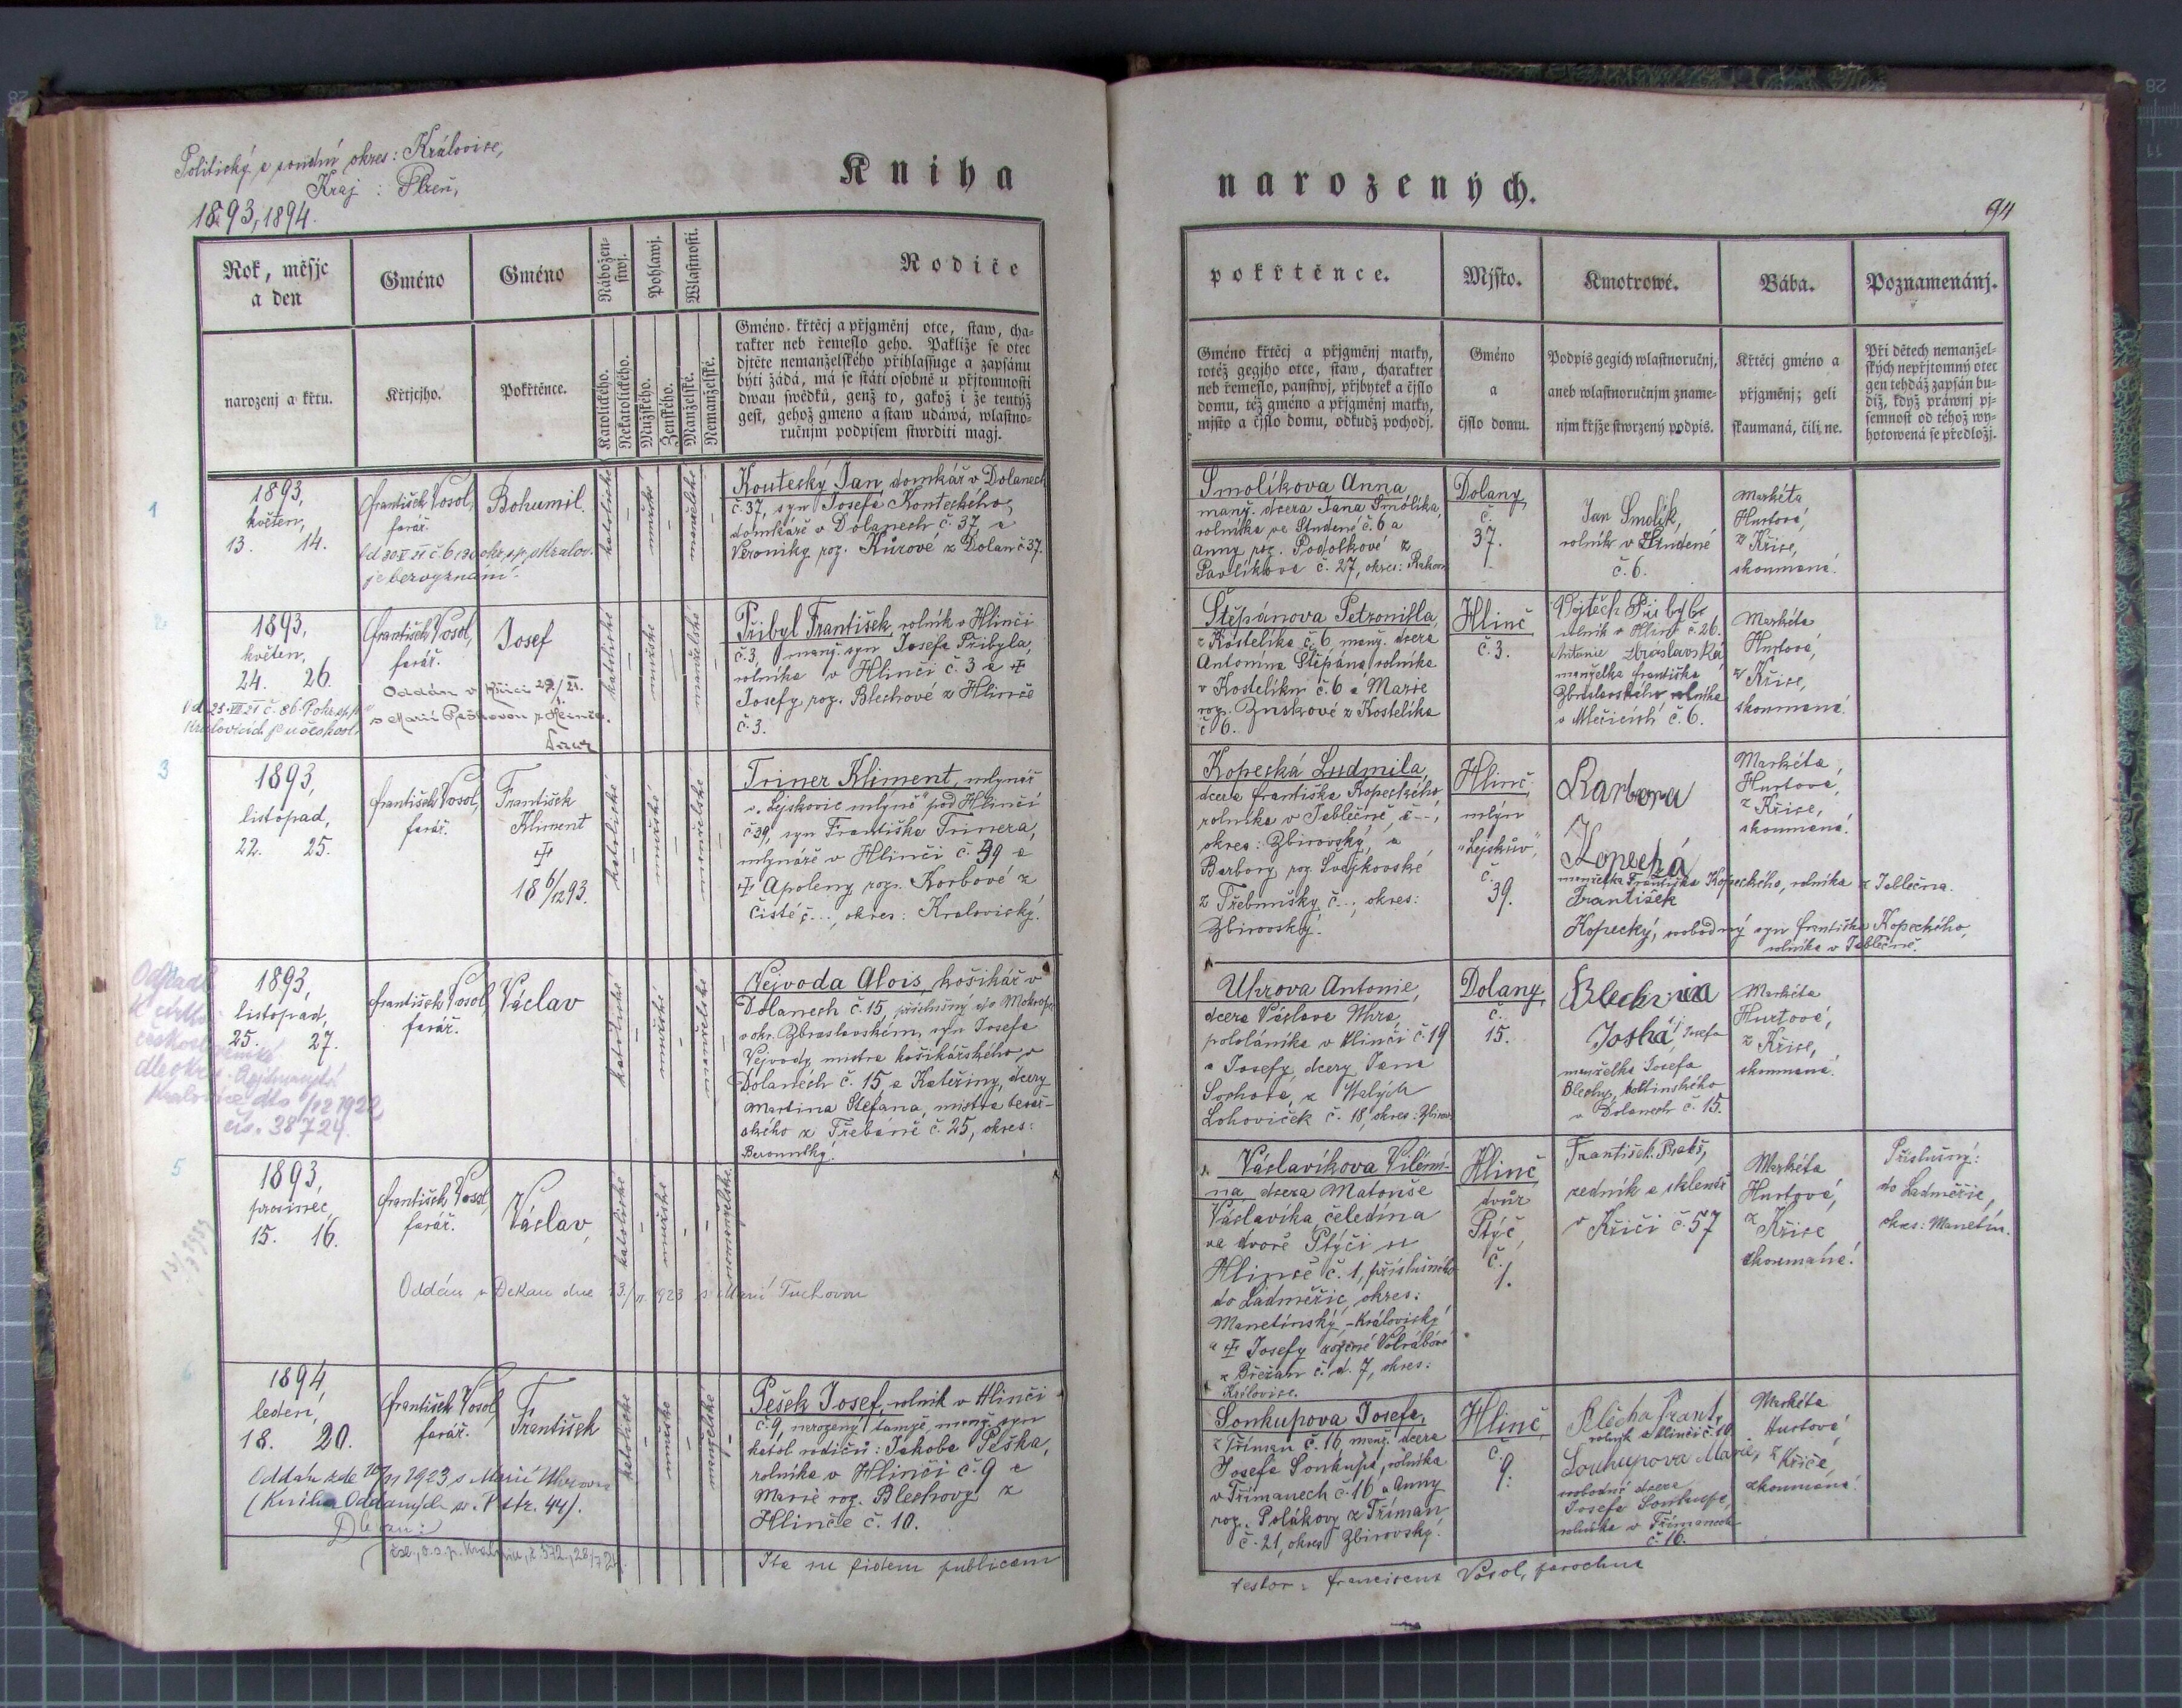 Politický a soudní okres: Královice,
Kraj: Plzeň,
1893, 1894.
Kniha
narozených.
94
Rok, měsjc
a den
Gméno
Gméno
Nábožen-
stwj.
Pohlawj.
Wlastnosti.
Rodiče
narozenj a křtu.
Křtjcjho.
Pokřtěnce.
Katolického.
Nekatolického.
Mužského.
Ženského.
Manželské.
Nemanželské.
Gméno křtěcj a přjgměnj otce, staw, cha-
rakter neb řemeslo geho. Pakliže se otec
djtěte nemanželského přihlassuge a zapsánu
býti žádá, má se státi osobně u přjtomnosti
dwau swědků, genž to, gakož i že tentýž
gest, gehož gmeno a staw udáwá, wlastno-
ručnjm podpisem stwrditi magj.
pokřtěnce.
Mjsto.
Kmotrowé.
Bába.
Poznamenánj.
Gméno křtěcj a přjgměnj matky,
totéž gegjho otce, staw, charakter
neb řemeslo, panstwj, přjbytek a čjslo
domu, též gméno a přjgměnj matky,
mjsto a čjslo domu, odkudž pochodj.
Gméno
a
čjslo domu.
Podpis gegich wlastnoručnj,
aneb wlastnoručnjm zname-
njm křjže stwrzený podpis.
Křtěcj gméno a
přjgměnj; geli
skaumaná, čili ne.
Při dětech nemanžel-
ských nepřjtomný otec
gen tehdáž zapsán bu-
diž, když práwnj pj-
semnost od téhož wy-
hotowená se předložj.
1
1893,
květen,
13. 14.
František Vosol,
farář.
Bohumil.
je bez vyznání.
katolické
mužské
manželské
Koutecký Jan, domkář v Dolanech
č. 37, syn Josefa Kouteckého,
domkáře v Dolanech č. 37, a
Veroniky roz. Kůrové z Dolan č. 37.
Smolíkova Anna
manž. dcera Jana Smolíka,
rolníka ve Studené č. 6 a
Anny roz. Podolkové z
Pavlíkova č. 27, okres: Rakov.
Dolany
č.
37.
Jan Smolík,
rolník v Studené
č. 6.
Markéta
Hurtová,
z Kříce,
skoumaná.
2
1893,
květen,
24. 26.
František Vosol,
farář.
Josef
s Marií Peškovou z Hlinče.
katolické
mužské
manželské
Přibyl František, rolník v Hlinči
č. 3, manž. syn Josefa Přibyla,
rolníka v Hlinči č. 3 a ☩
Josefy roz. Blechové z Hlinče
č. 3.
Štěpánova Petronilla,
z Kostelíka č. 6, manž. dcera
Antonína Štěpána, rolníka
v Kostelíku č. 6 a Marie
roz. Zuskové z Kostelíka
č. 6.
Hlinč
č. 3.
Vojtěch Přibyl
rolník v Hlinči č. 26.
Antonie Zbraslavská
manželka Františka
Zbraslavského rolníka
v Mlečicích č. 6.
Markéta
Hurtová,
z Kříce,
skoumaná.
3
1893,
listopad,
22. 25.
František Vosol,
farář.
František
Kliment
☩
18 6/12 93.
katolické
mužské
manželské
Triner Kliment, mlynář
v „Lejskovic mlýně" pod Hlinčí
č. 39, syn Františka Trinera,
mlynáře v Hlinči č. 39 a
☩ Apoleny roz. Korbové z
Čisté č..., okres: Kralovický.
Kopecká Ludmila,
dcera Františka Kopeckého
rolníka v Jablečně, č. –,
okres: Zbirovský, a
Barbory roz. Švajkovské
z Třebnušky č..., okres:
Zbirovský.
Hlinč
mlýn
„Lejskův",
č.
39.
Barbora
Kopecká
manželka Františka Kopeckého, rolníka z Jablečna.
František
Kopecký, svobodný syn Františka Kopeckého,
rolníka v Jablečně.
Markéta
Hurtová,
z Kříce,
skoumaná.
Odpadl
k církvi
českoslovanské
Kralovice dto 1/12 1922
čís. 38724.
1893,
listopad,
25. 27.
František Vosol,
farář.
Václav
katolické
mužské
manželské
Vejvoda Alois, košíkář v
Dolanech č. 15, příslušný do Mokropes
v okr. Zbraslavském, syn Josefa
Vejvody, mistra košíkářského v
Dolanech č. 15, a Kateřiny, dcery
Martina Štefana, mistra
z Třebáně č. 25, okres:
Berounský.
Uhrova Antonie,
dcera Václava Uhra,
pololáníka v Hlinči č. 19
a Josefy, dcery Jana
Sochora, z Malých
Lohoviček č. 18, okres: Zbirov.
Dolany
č.
15.
Josefa
manželka Josefa
Blechy,
v Dolanech č. 15.
Markéta
Hurtová,
z Kříce,
skoumaná.
5
1893,
prosinec,
15. 16.
František Vosol,
farář.
Václav,
katolické
mužské
nemanželské
Václavíkova Vilémí-
na, dcera Matouše
Václavíka čeledína
ve dvoře Ptýči u
Hlinče č. 1, příslušného
do Ladměřic, okres:
Manetínský, -Královický
a ☩ Josefy rozené Volrábové
z Břežan č. d. 7, okres:
Královice.
Hlinč
dvůr
Ptýč,
č.
1.
František
zedník a sklenář
v Kříči č. 57
Markéta
Hurtová,
z Kříce
zkoumaná.
Příslušný:
do Ladměřic,
okres: Manetín.
Oddán v Dekau dne 1923 s Marií Tuchovou
6
1894,
leden,
18. 20.
František Vosol,
farář.
František
1923 s Marií Uhrovou
(Kniha Oddaných sv. V str. 44).
katolické
mužské
manželské
Pešek Josef, rolník v Hlinči
č. 9, narozený tamže, manž. syn
katol. rodičů: Jakoba Peška,
rolníka v Hlinči č. 9 a
Marie roz. Blechovy z
Hlinče č. 10.
Soukupova Josefa,
z Tříman č. 16, manž. dcera
Josefa Soukupa, rolníka
v Třímanech č. 16 a Anny
roz. Polákovy z Tříman
č. 21, okres Zbirovský.
Hlinč
č.
9.
Blecha Frant.
rolník v Hlinči č. 10.
Soukupova Marie,
svobodná dcera
Josefa Soukupa,
rolníka v Třímanech
č. 16.
Markéta
Hurtová,
z Kříce,
zkoumaná.
Ita in fidem publicam
testor: Franciscus Vosol, parochus